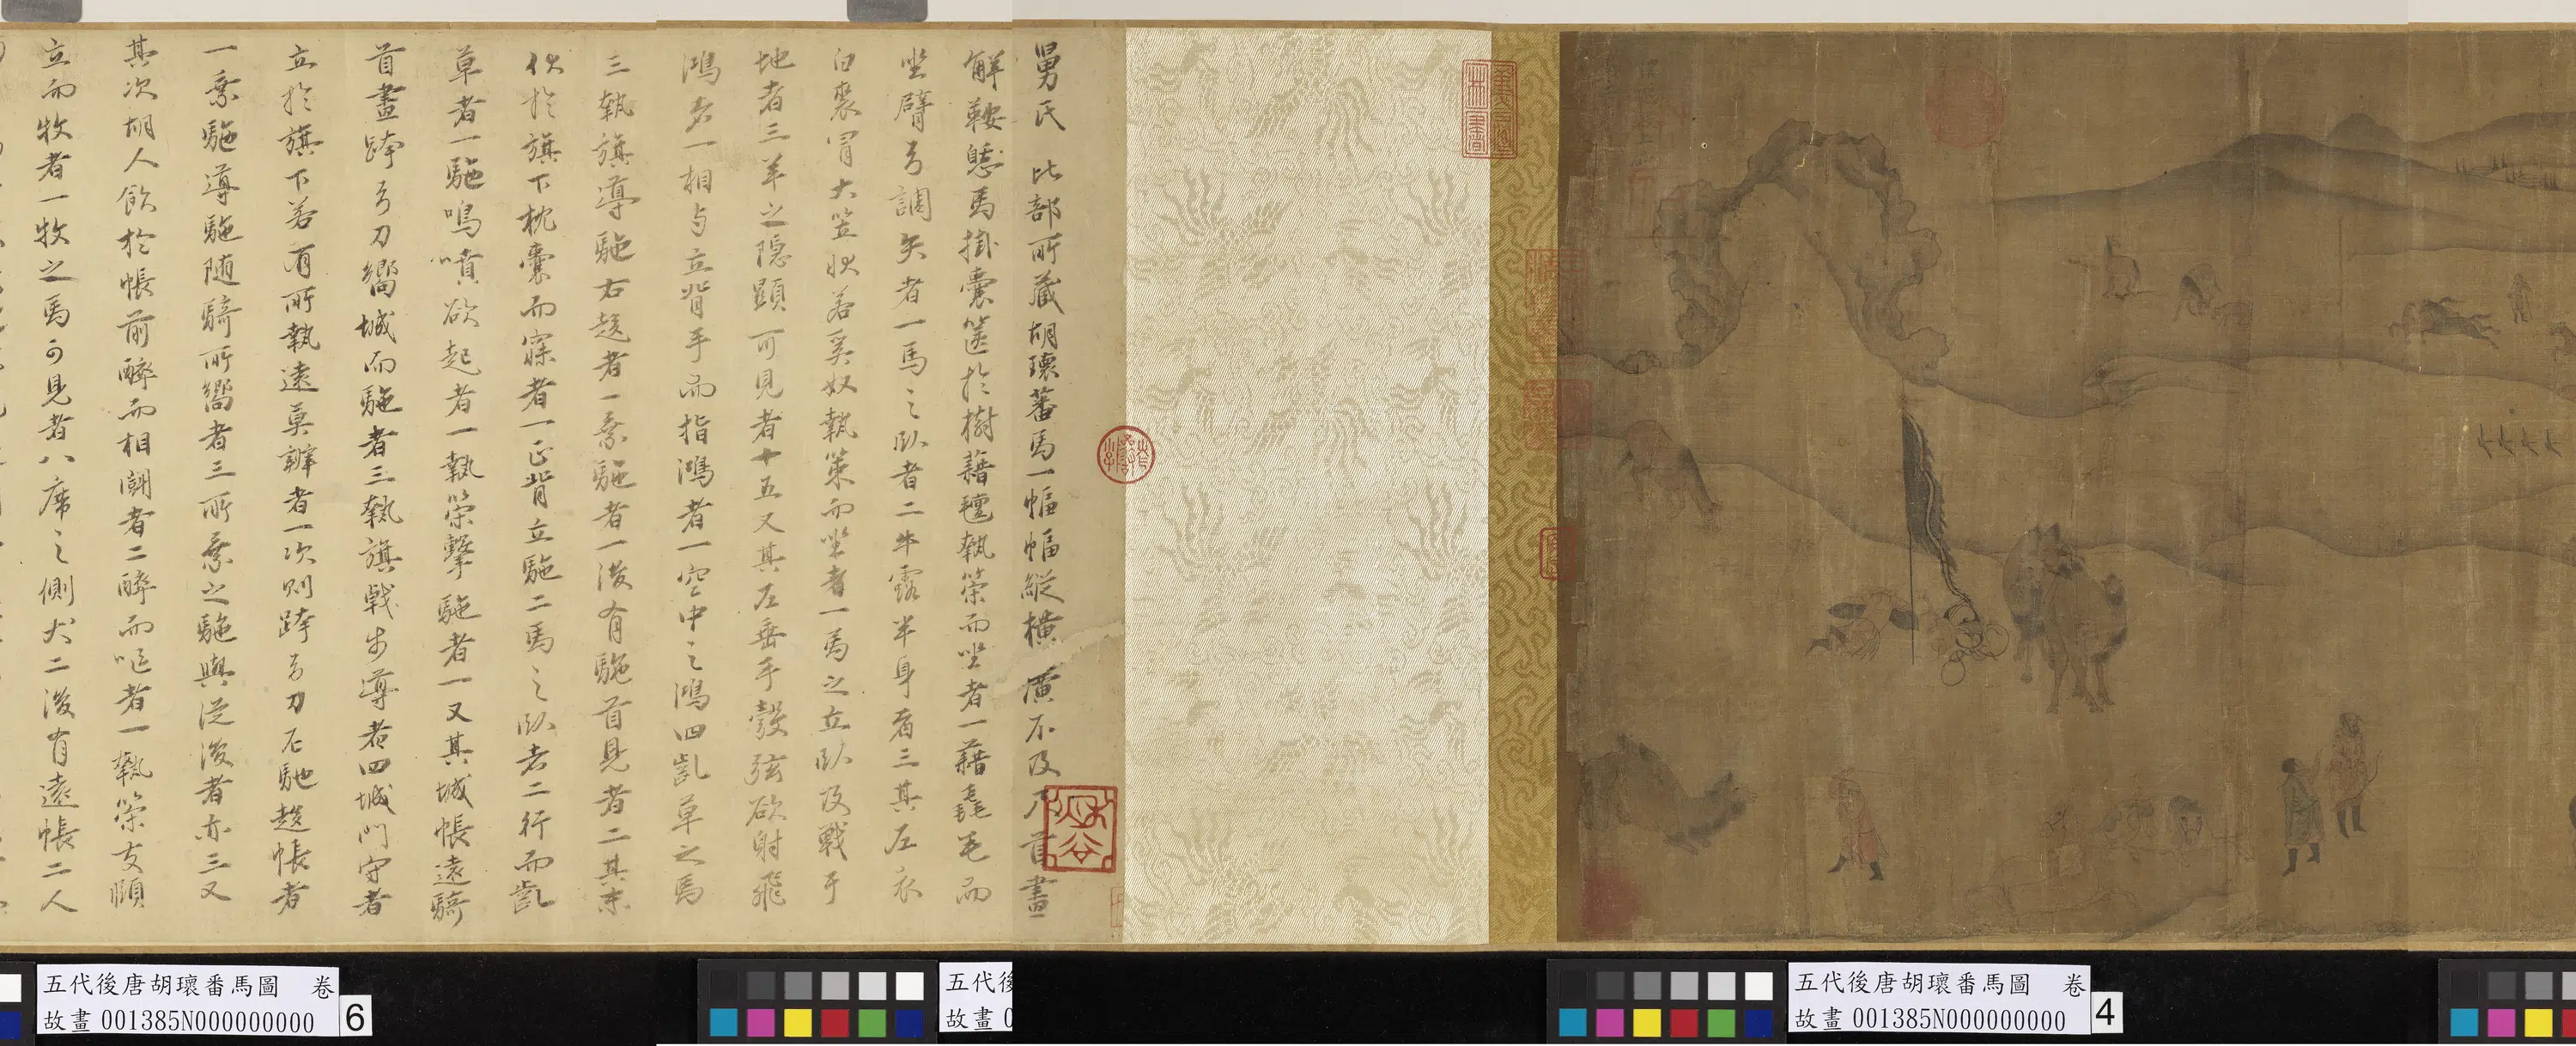 舅氏 比部所藏胡瓌蕃馬一幅幅縱橫廣不及
首畫
解鞍憩馬掛囊篋於樹藉氊執策而坐者一藉毳毛而
坐臂弓調矢者一馬之臥者二半露半身者三其左衣
白裘冒大笠狀若奚奴執策而坐者一馬之立臥及戰于
地者三羊之隱顯可見者十五又其左垂手彀弦欲射飛
鴻者一相与立背手而指鴻者一空中之鴻四齕草之馬
三執旗導駞右趍者一乘駞者一後有駞首見者二其末
伏於旗下枕囊而寐者一正背立駞二馬之臥者二行而齕
草者一駞鳴嘖欲起者一執策擊駞者一又其城帳遠騎
首畫跨弓刀嚮城而駞者三執旗戟步導者四城門守者
立於旗下若有所執遠莫辨者一次則跨弓刀右馳趍帳者
一乘駞導駞隨騎所嚮者三所乘之駞與從後者亦三又
其次胡人飲於帳前醉而相鬪者二醉而嘔者一執策支頤
立而牧者一牧之馬可見者八席之側犬二後有遠帳二人
五代後唐胡瓌番馬圖 卷
故畫 001385N000000000 6
五代後
故畫 0
五代後唐胡瓌番馬圖 卷
故畫 001385N000000000 4